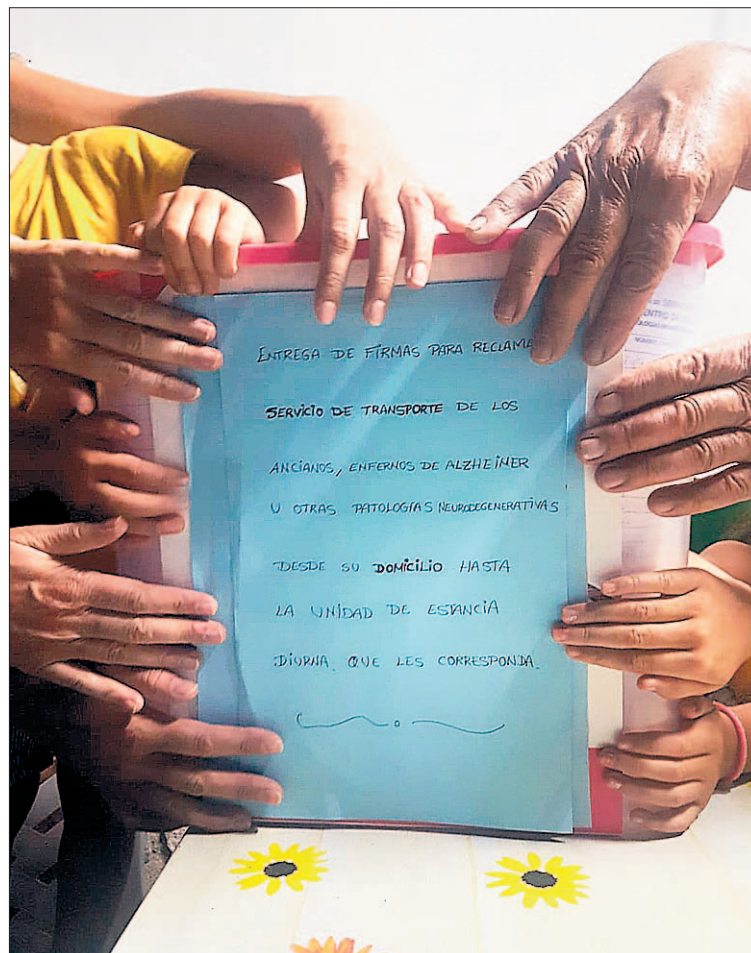 ENTREGA DE FIRMAS PARA RECLAMA
SERVICIO DE TRANSPORTE DE LOS
ANCIANOS, ENFERMOS DE ALZHEIMER
U OTRAS PATOLOGÍAS NEURODEGENERATIVAS
DESDE SU DOMICILIO HASTA
LA UNIDAD DE ESTANCIA
DIURNA QUE LES CORRESPONDA.